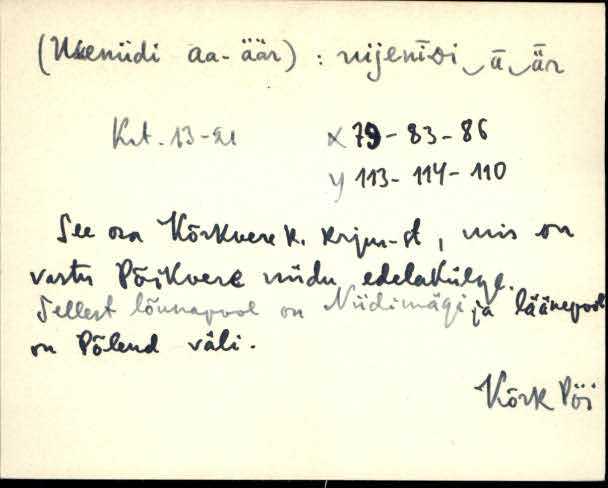 (Ukeniidi aa-äär) : niijenīDi‿ā‿är
Krt. 13-21 x 79-83-86
y 113-114-110
See osa Kõrkvere k. krjm-st, mis on
vastu Põikvere niidu edelakülge.
Sellest lõunapool on Niidimägi ja läänepool
on Põlend väli.
Kõrk Pöi